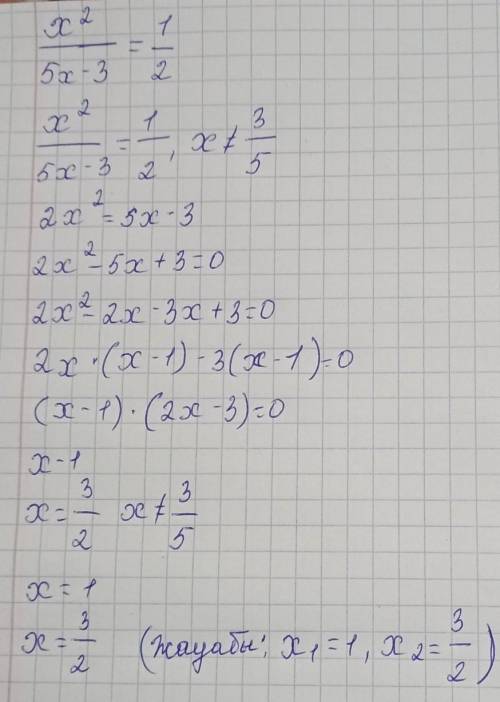 x²/(5x-3) = 1/2
x²/(5x-3) = 1/2, x ≠ 3/5
2x² = 5x-3
2x² - 5x + 3 = 0
2x² - 2x - 3x + 3 = 0
2x · (x-1) - 3(x-1) = 0
(x-1) · (2x-3) = 0
x-1
x = 3/2 x ≠ 3/5
x = 1
x = 3/2 (жауабы; x₁ = 1, x₂ = 3/2)